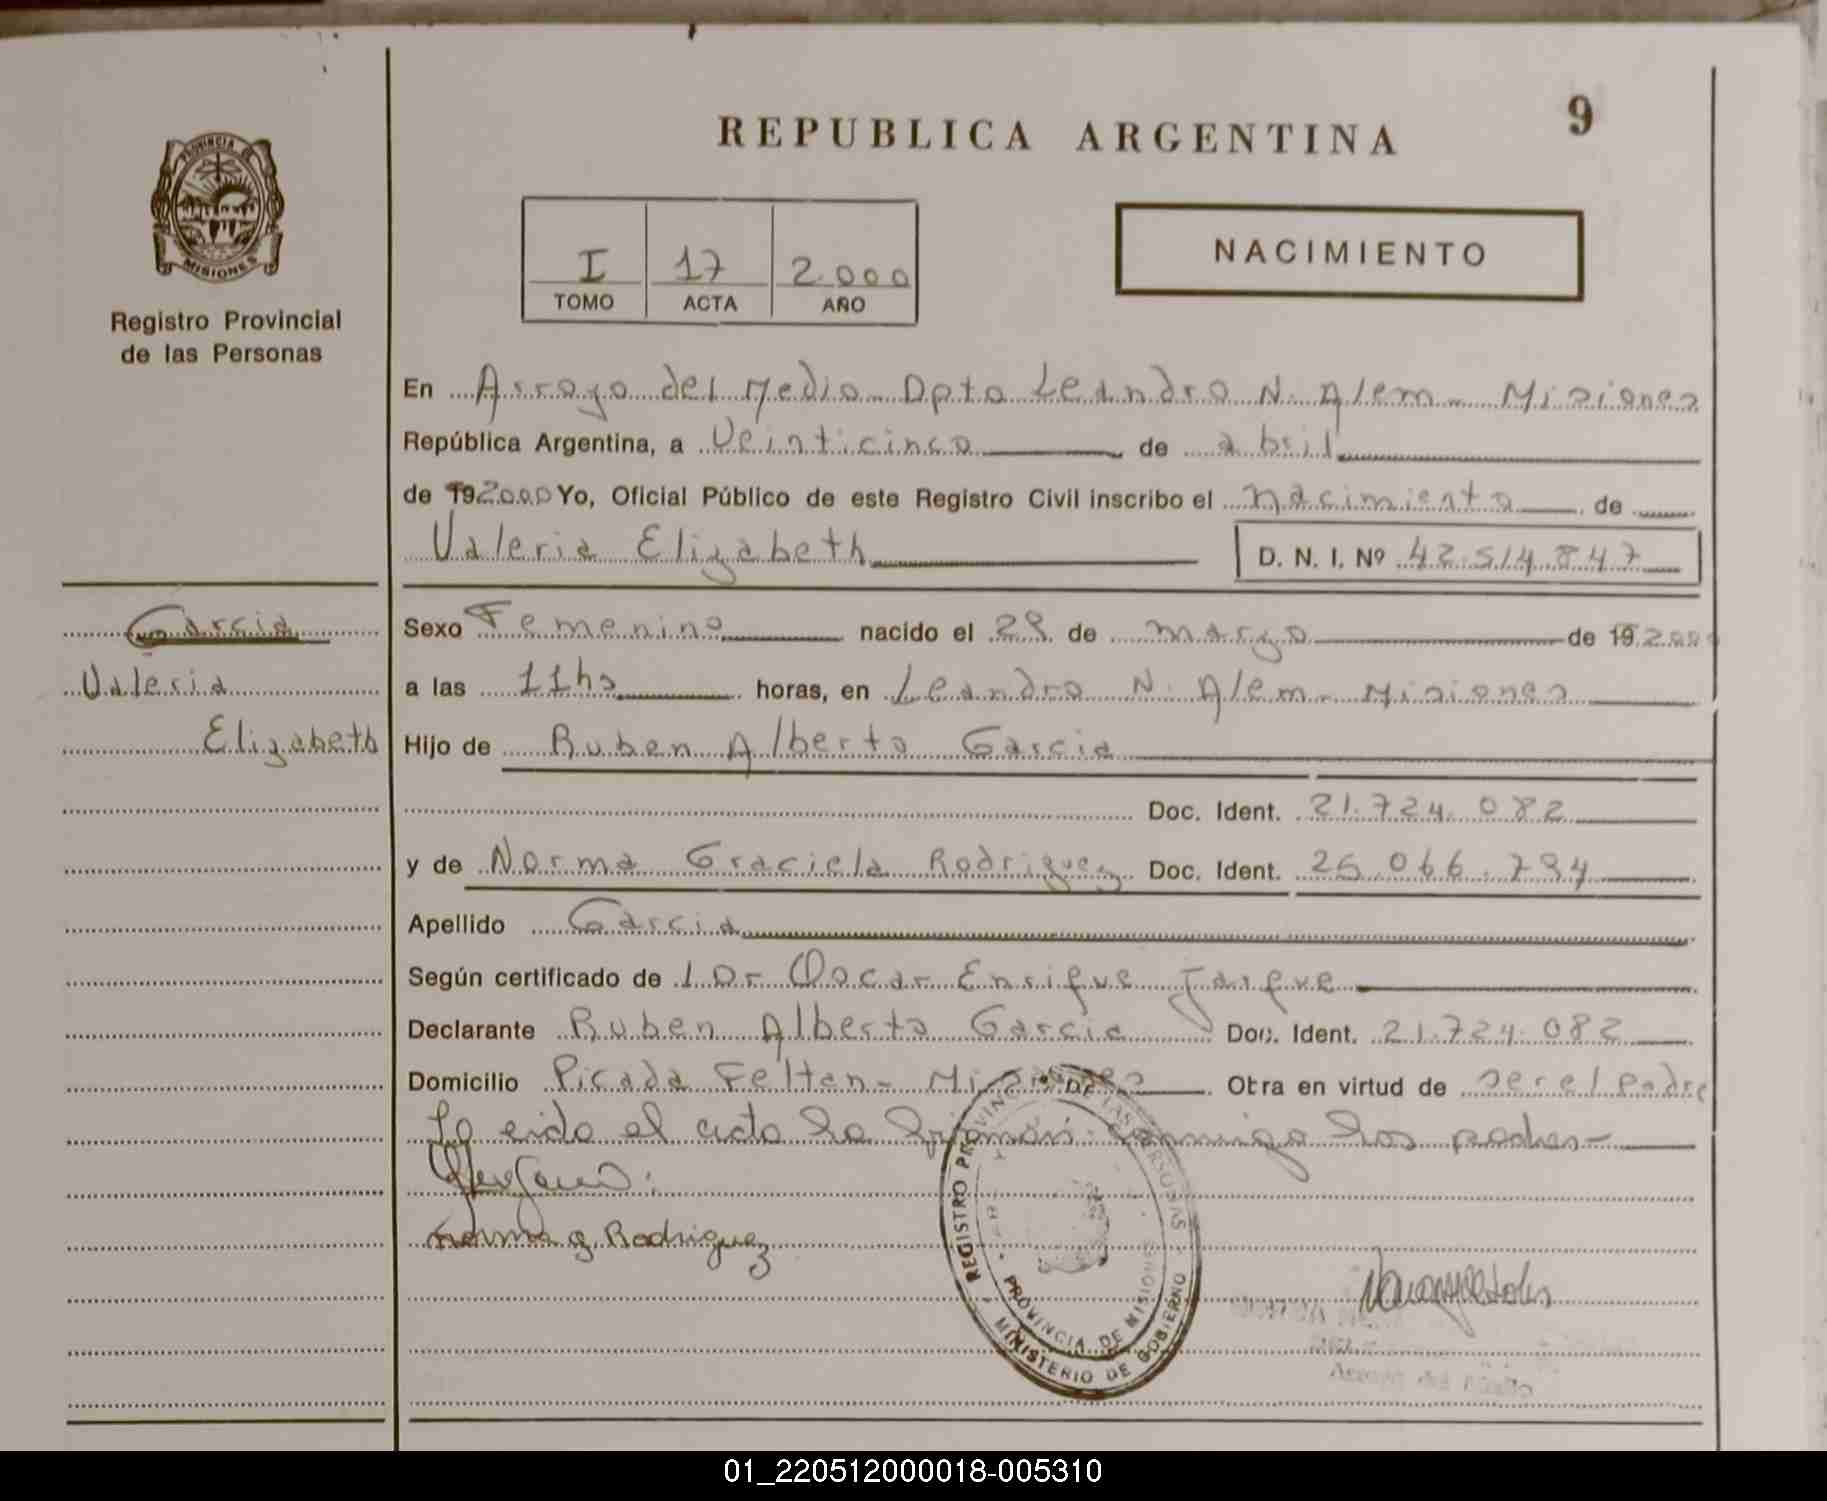 REPUBLICA ARGENTINA
9
PROVINCIA DE MISIONES
Registro Provincial
de las Personas
I 17 2.000
TOMO ACTA AÑO
NACIMIENTO
En Arroyo del Medio Dpto Leandro N. Alem - Misiones
República Argentina, a Veinticinco de abril
de 192000 Yo, Oficial Público de este Registro Civil inscribo el nacimiento de
Valeria Elizabeth D. N. I. Nº 42.514.847
Garcia
Valeria
Elizabeth
Sexo Femenino nacido el 29 de marzo de 19 2000
a las 11hs horas, en Leandro N. Alem - Misiones
Hijo de Ruben Alberto Garcia
Doc. Ident. 21.724.082
y de Norma Graciela Rodriguez Doc. Ident. 25.066.794
Apellido Garcia
Según certificado de l Dr Oscar Enrique Jarque
Declarante Ruben Alberto Garcia Doc. Ident. 21.724.082
Domicilio Picada Feltan - Misiones Otra en virtud de ser el padre
Leido el acta la firman conmigo los padres -
Norma G. Rodriguez
REGISTRO PROVINCIAL DE LAS PERSONAS
PROVINCIA DE MISIONES
MINISTERIO DE GOBIERNO
Arroyo del Medio
01_220512000018-005310